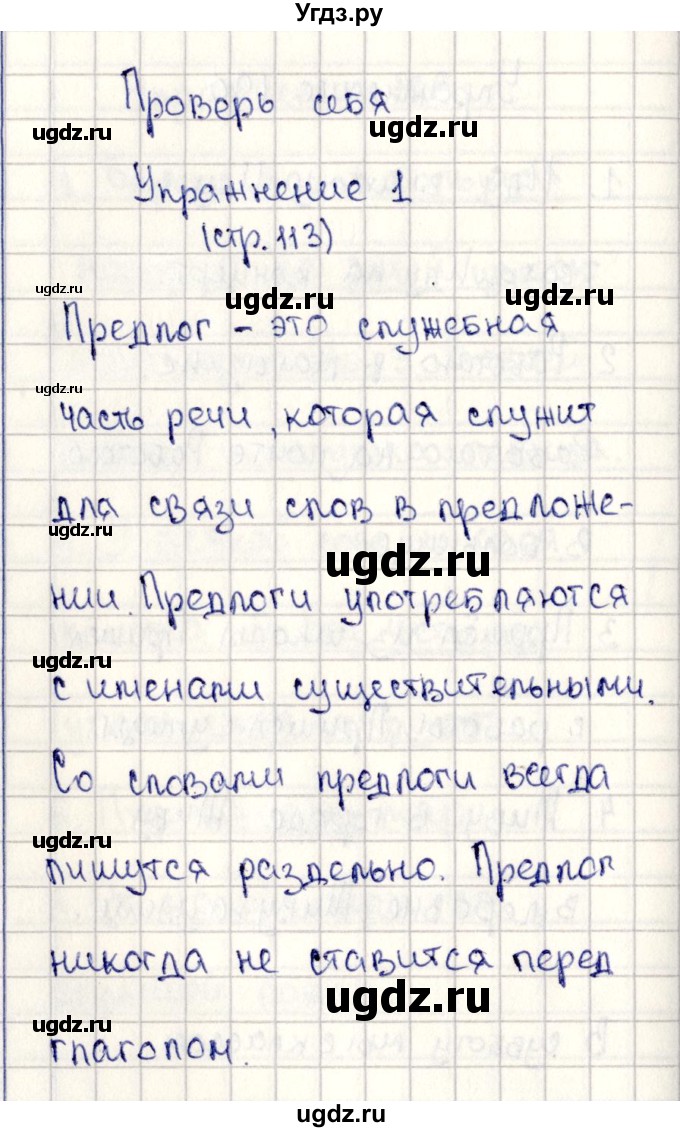 Угдз.ру
Проверь себя
ugdz.ru
ugdz.ru
Упражнение 1
(стр. 113)
ugdz.ru
ugdz.ru
ugdz.ru
Предлог - это служебная
ugdz.ru
часть речи, которая служит
для связи слов в предложе-
ugdz.ru
ugdz.ru
нии. Предлоги употребляются
ugdz.ru
с именами существительными.
Со словами предлоги всегда
ugdz.ru
пишутся раздельно. Предлог
никогда не ставится перед
ugdz.ru
ugdz.ru
глаголом.
ugdz.ru